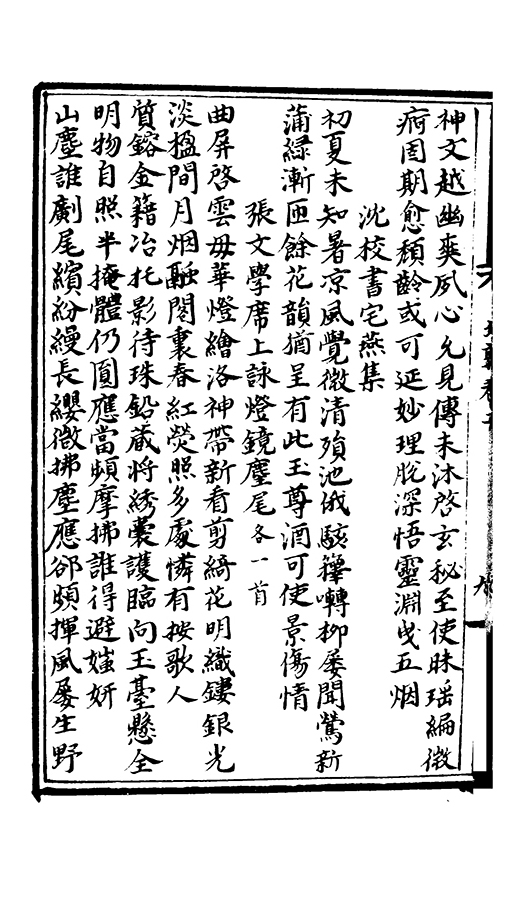 神文越幽爽夙心允見傳未沐啓玄秘至使昧瑶編徵
痾固期愈頹齡或可延妙理脫深悟靈淵曵五烟
沈校書宅燕集
初夏未知暑凉風覺微清殞池俄駭籜囀柳屡聞鶯新
蒲緑漸匝餘花韻猶呈有此玉尊酒可使景傷情
張文學席上詠燈鏡麈尾各一首
曲屏啓雲母華燈繪洛神帶新看剪綺花明織鏤銀光
淡楹間月烟融閣裏春紅熒照多處憐有按歌人
質鎔金籍冶托影待珠鉛蔵將綉囊護臨向玉䑓懸全
明物自照半掩體仍圎應當頻摩拂誰得避媸妍
山麈誰劘尾繽紛縵長纓微拂塵應郤頻揮風屡生野